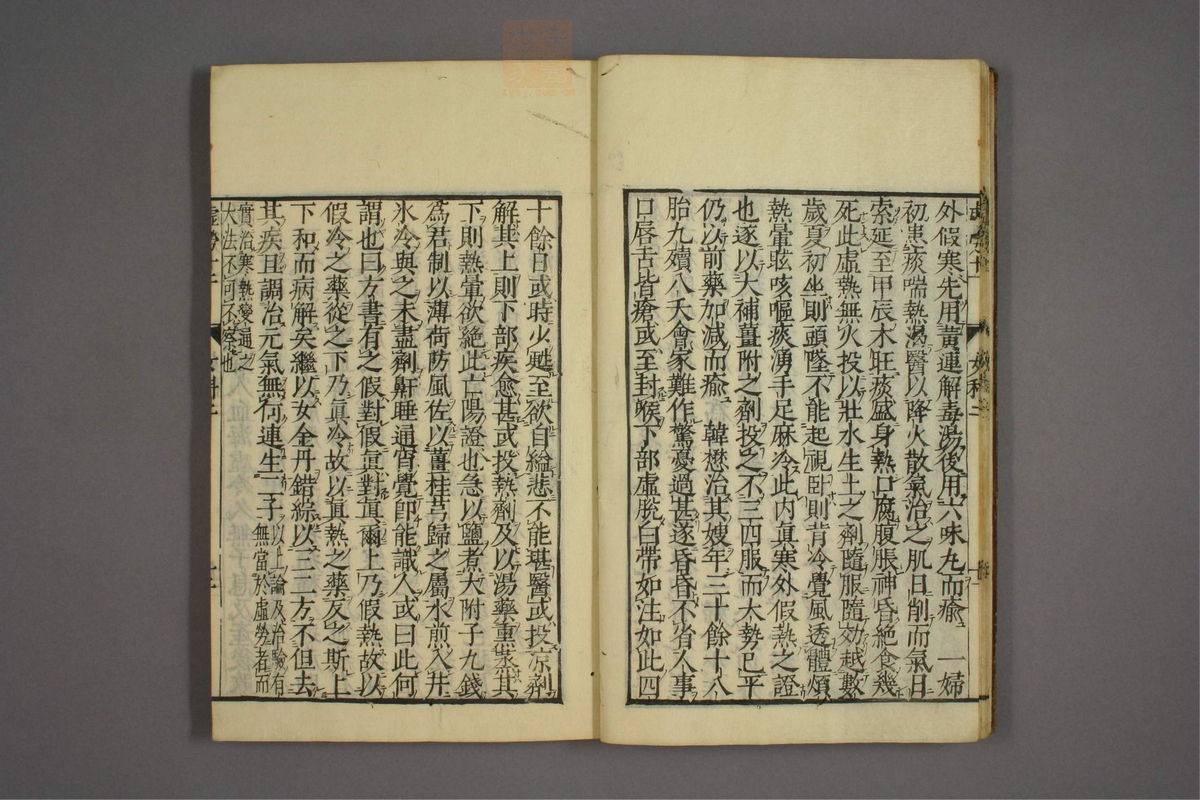 外假寒先用黃連解毒湯後用六味丸而癒　一婦
初患痰喘熱渴醫以降火散氣治之肌日削而氣日
索延至甲辰木旺痰盛身熱口腐腹脹神昏絕食幾
死此虛熱無火投以壯水生土之劑隨服隨効越數
歲夏初坐則頭墜不能起視臥則背冷覺風透體煩
熱暈眩咳嘔痰湧手足麻冷此內眞寒外假熱之證
也遂以大補薑附之劑投之不三四服而大勢已平
仍以前藥加減而癒　韓懋治其嫂年三十餘十八
胎九殰八夭會家難作驚憂過甚遂昏昏不省人事
口唇舌皆瘡或至封喉下部虛脫白帶如注如此四
十餘日或時少甦至欲自縊悲不能堪醫或投凉劑
解其上則下部疾愈甚或投熱劑及以湯藥熏蒸其
下則熱暈欲絕此亡陽證也急以鹽煮大附子九錢
爲君制以薄荷防風佐以薑桂芎歸之屬水煎入井
氷冷與之未盡劑鼾睡通宵覺卽能識人或曰此何
謂也曰方書有之假對假眞對眞爾上乃假熱故以
假冷之藥從之下乃眞冷故以眞熱之藥反之斯上
下和而病解矣繼以女金丹錯綜以三二方不但去
其疾且調治元氣無何連生二子以上論及治驗有
無當於虛勞者而
實治寒熱變通之
大法不可不察也
虛勞
女科二